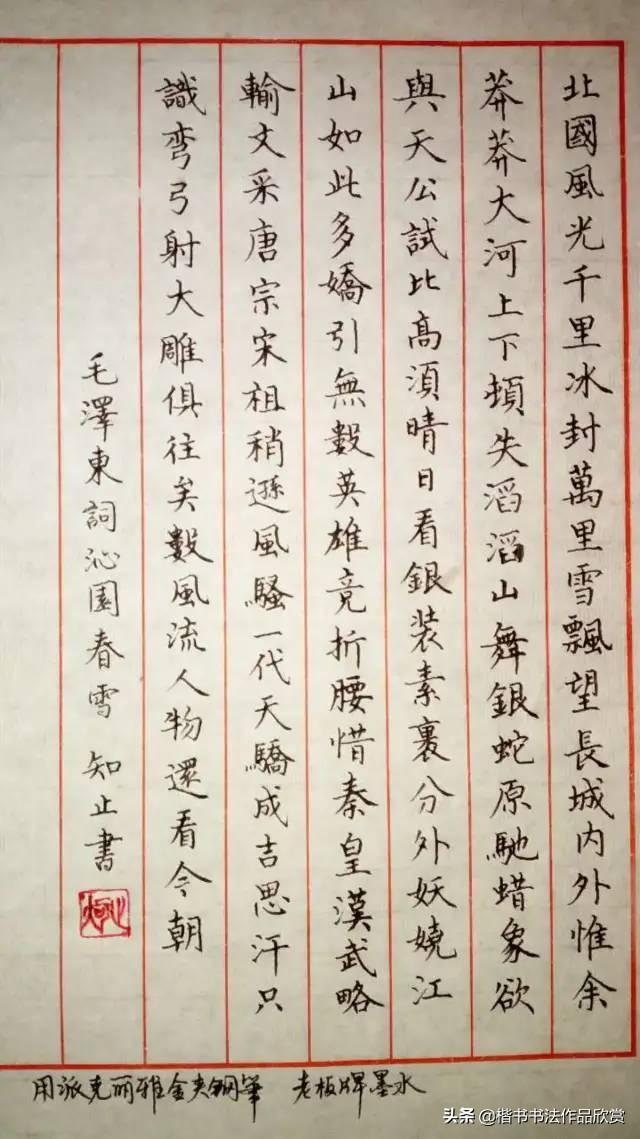 北國風光千里冰封萬里雪飄望長城内外惟余
莽莽大河上下頓失滔滔山舞銀蛇原馳蜡象欲
與天公試比高須晴日看銀装素裹分外妖嬈江
山如此多嬌引無數英雄竞折腰惜秦皇漢武略
輸文采唐宗宋祖稍遜風騷一代天驕成吉思汗只
識弯弓射大雕俱往矣數風流人物還看今朝
毛澤東詞沁園春雪 知止書
用派克丽雅金夹钢笔 老板牌墨水
头条@楷书书法作品欣赏